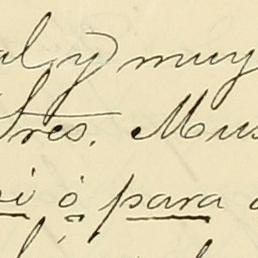 al y muy
Sres. Mus
ó para